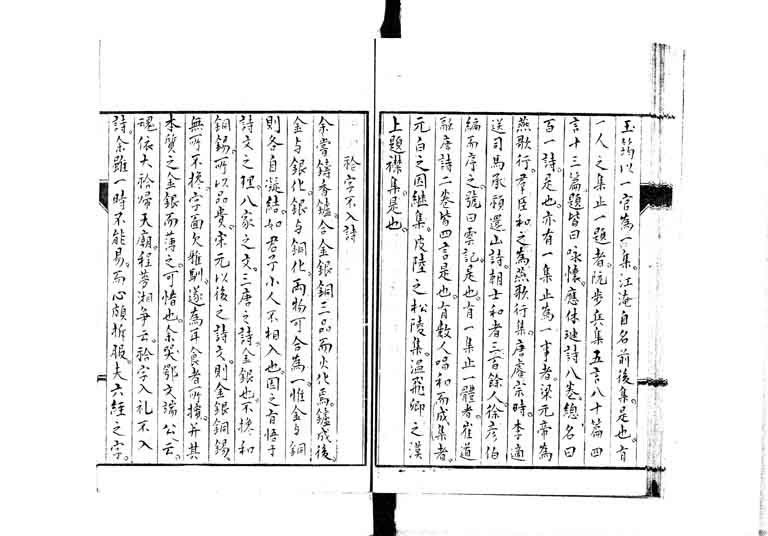 玉筠以一官為一集。江淹自名前後集。是也。有
一人之集止一題者。阮步兵集五言八十篇四
言十三篇。題皆曰咏懷。應休璉詩八卷。總名曰
百一詩。是也。亦有一集止為一事者。梁元帝為
燕歌行。羣臣和之為燕歌行集。唐睿宗時。李適
送司馬承禎還山詩。朝士和者三百餘人。徐彥伯
編而序之。號曰雲記。是也。有一集止一體者。崔道
融唐詩二卷。皆四言是也。有數人唱和而成集者。
元白之因継集。皮陸之松陵集。温飛卿之漢
上題襟集。是也。
袷字不入詩
余嘗鑄香鑪。合金銀銅三品而火化焉。鑪成後。
金与銀化。銀与銅化。兩物可合為一。惟金与銅
則各自凝結。如君子小人不相入也。因之有悟于
詩文之理。八家之文。三唐之詩。金銀也。不攙和
銅錫。所以品貴。宋元以後之詩文。則金銀銅錫。
無所不攙。字面欠雅馴。遂為耳食者所擯。并其
本質之金銀而薄之。可惜也。余哭鄂文端公云。
魂依大袷歸天廟。程夢湘爭云。袷字入礼不入
詩。余雖一時不能易。而心頗折服。夫六經之字。